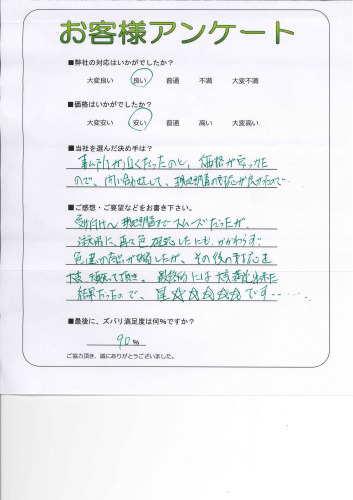 お客様アンケート
■弊社の対応はいかがでしたか?
大変良い 良い 普通 不満 大変不満
■価格はいかがでしたか?
大変安い 安い 普通 高い 大変高い
■当社を選んだ決め手は?
事ム所が近くだったのと、価格が安かった
ので、問い合わせして、現地調査の対応が良かったので
■ご感想・ご要望などをお書き下さい。
受付け〜現地調査までスムーズだったが、
注文用に、再々色確認したにも、かかわらず
色違の商品が到着したが、その後の対応を
大変 頂き、最終的には大変満足出来た
結果だったので、星☆☆☆☆☆です・・・・・・
■最後に、ズバリ満足度は何%ですか?
90 %
ご協力頂き、誠にありがとうございました。